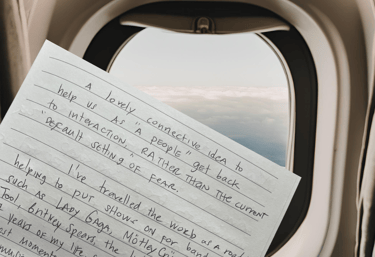 A lovely connective idea to
help us as "a people" get back
to interaction, RATHER THAN THE CURRENT
"default setting" OF FEAR.
I've travelled the world as a road
helping to put shows on for bands
such as Lady Gaga, Mötley Crü
Tool, Britney Spears, the
years of my life,
st moment